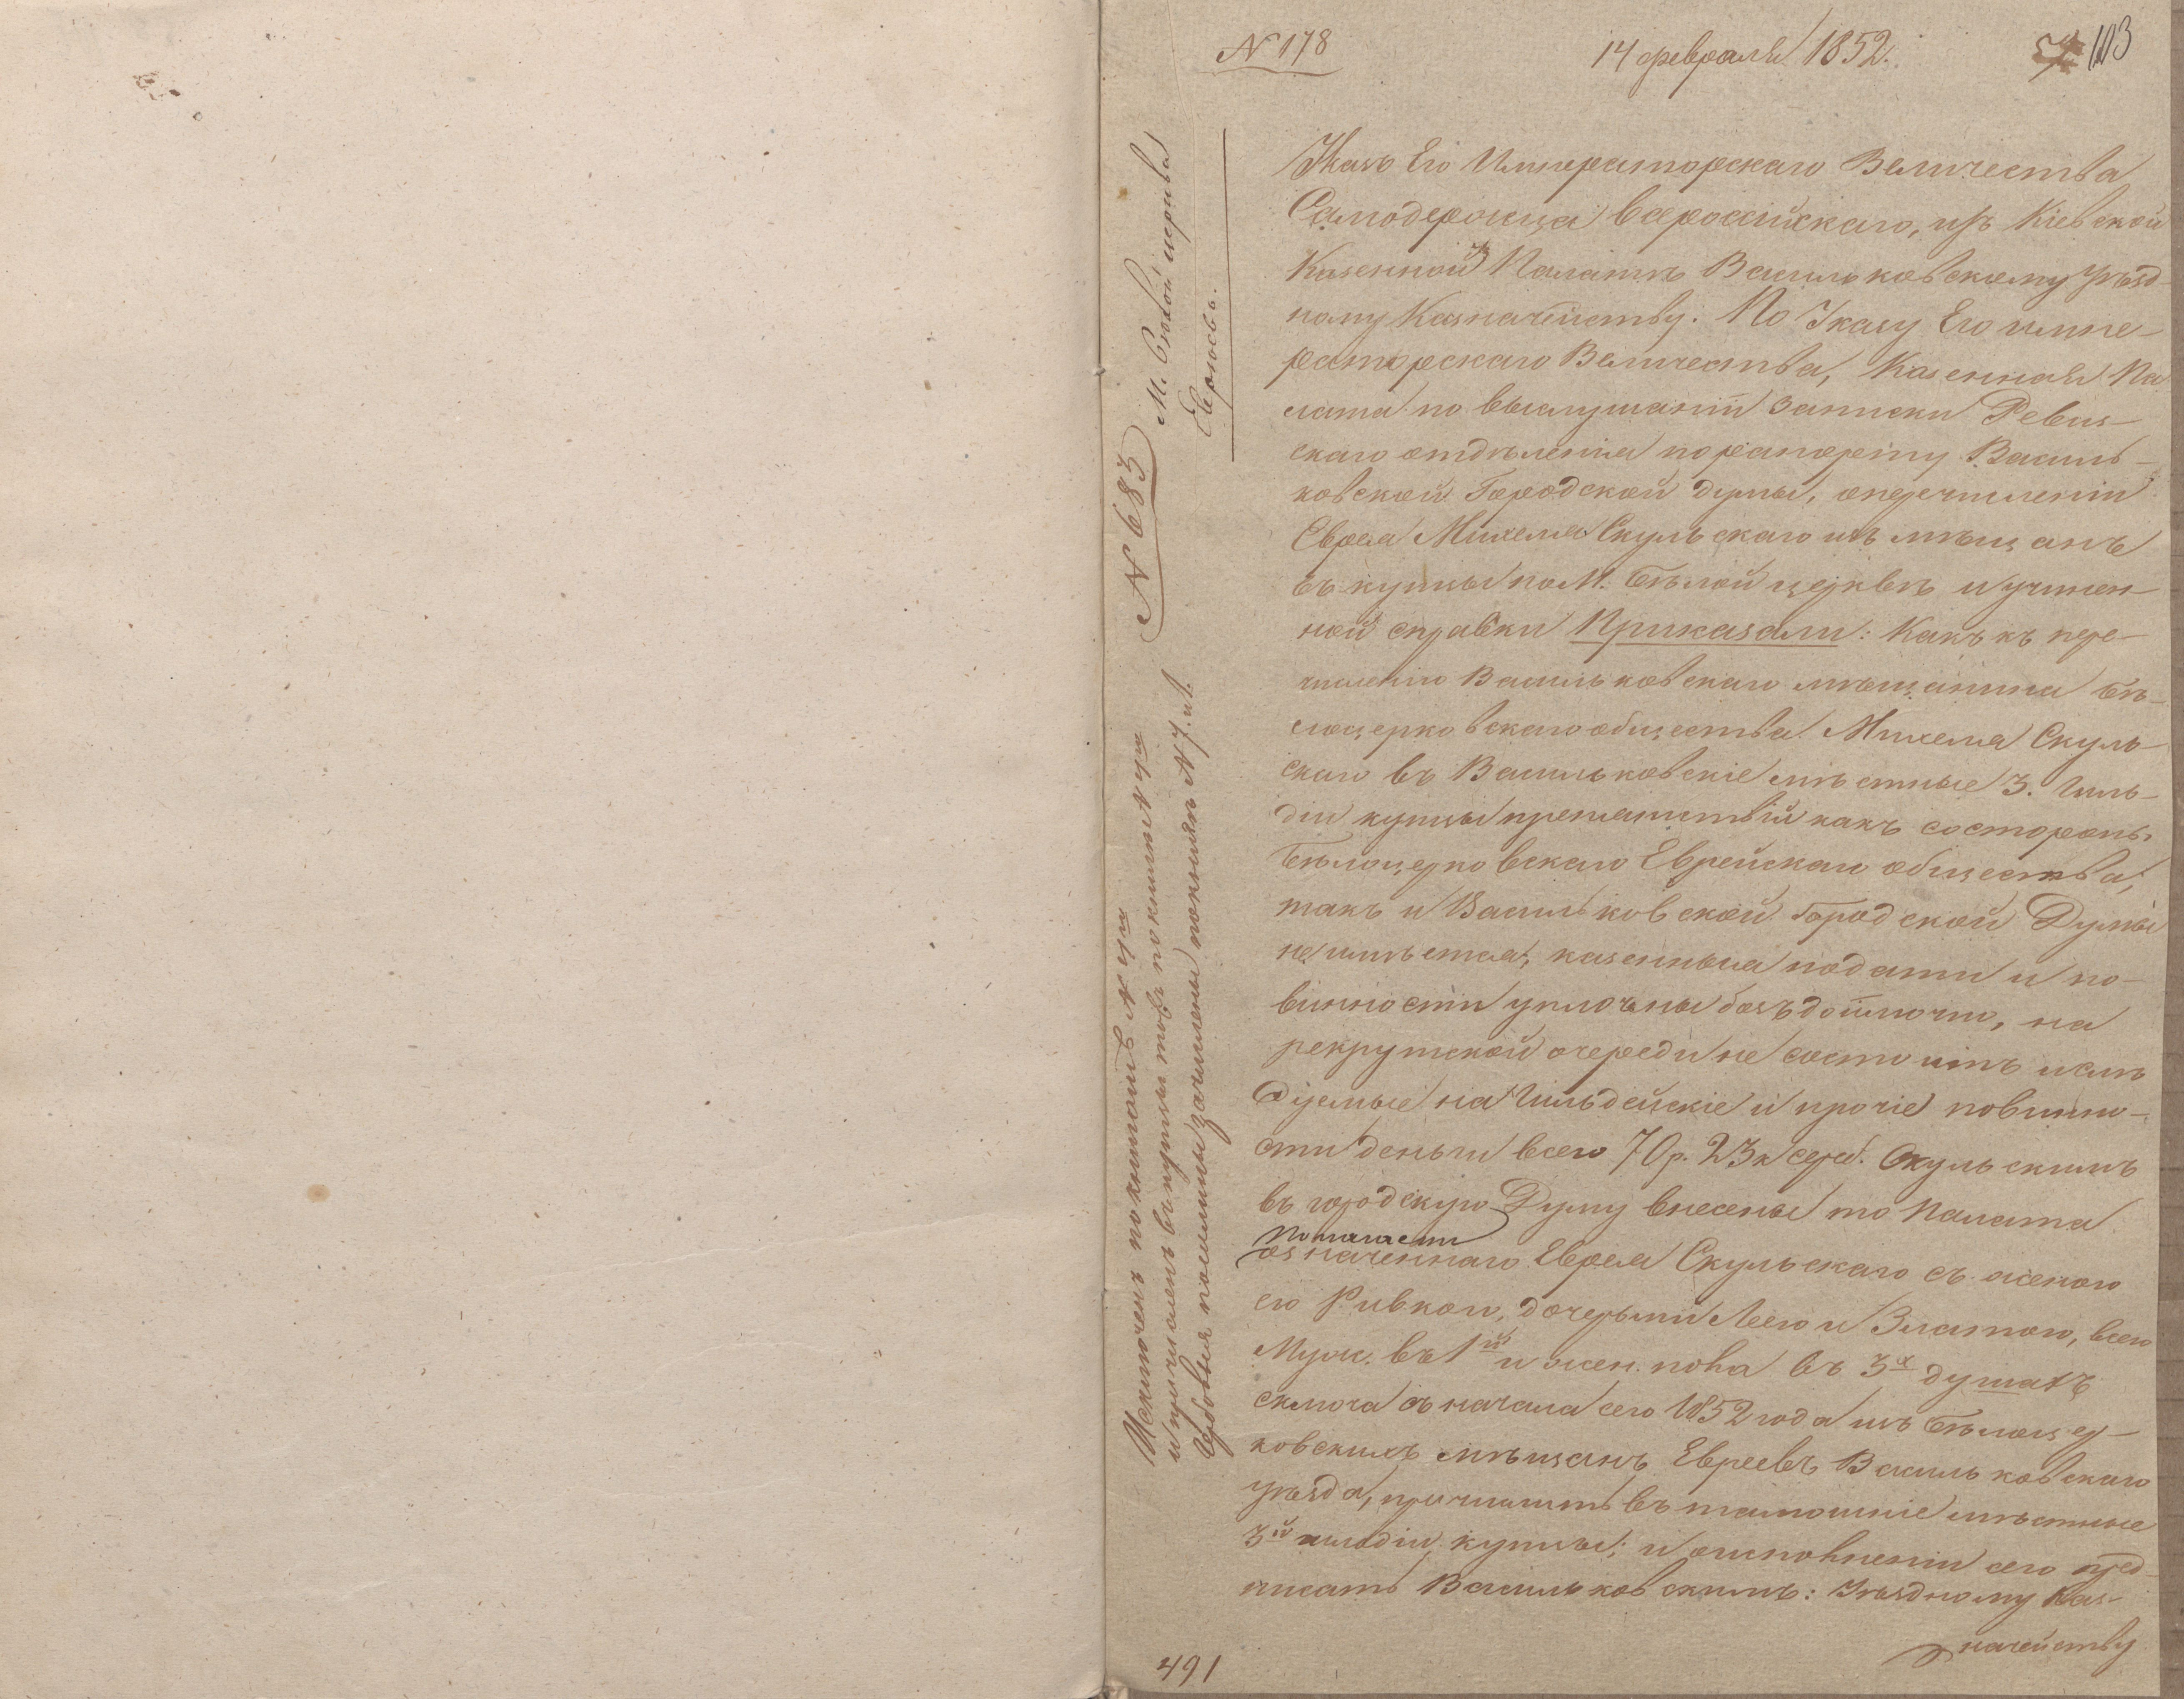 N 178
14 февраля 1852.
103
Указъ Его Императорскаго Величества
Самодержца всероссійскаго, изъ Кіевской
Казенной Палаты Васильковскому Уѣзд-
ному Казначейству. По Указу Его импе-
раторскаго Величества, Казенная Па
лата по выслушаніи записки Ревиз-
скаго отдѣленія по рапорту Василь-
ковской Городской думы, о перечисленіи
Еврея Михеля Скульскаго изъ мѣщанъ
въ купцы по М. Бѣлой церквѣ и учинен-
ной справки Приказали: Какъ къ пере-
численію Васильковскаго мѣщанина Бѣ-
лоцерковскаго общества Михеля Скуль-
скаго въ Васильковскіе мѣстные 3. Гиль-
діи купцы препятствій какъ со стороны
Бѣлоцерковскаго Еврейскаго общества,
такъ и Васильковской Городской Думы
не имѣется, казенныя подати и по-
винности уплочены безъ доимочно, на
рекрутской очереди не состоитъ и слѣ
дуемые на Гильдейскіе и прочіе повинно-
сти деньги всего 70 р. 23 к сереб. Скульскимъ
въ городскую Думу внесены то Палата
полагаетъ
означеннаго Еврея Скульскаго съ женою
его Ривкою, дочерьми Леею и Златою, всего
Муж. въ 1й и жен. пола въ 3х душахъ
сключа съ начала сего 1852 года изъ Бѣлоцер-
ковскихъ мѣщанъ Евреевъ Васильковскаго
уѣзда, причислить въ тамошніе мѣстные
3й гильдіи купцы; и о исполненіи сего пред-
писать Васильковскимъ: Уѣздному Каз-
начейству
N 683
М. Бѣлой церкви
Евреевъ.
Исключенъ по книгѣ N
и причисленъ въ купцы по книгѣ N
Гербовыя пошлины зачислены по книгѣ N 7.
491